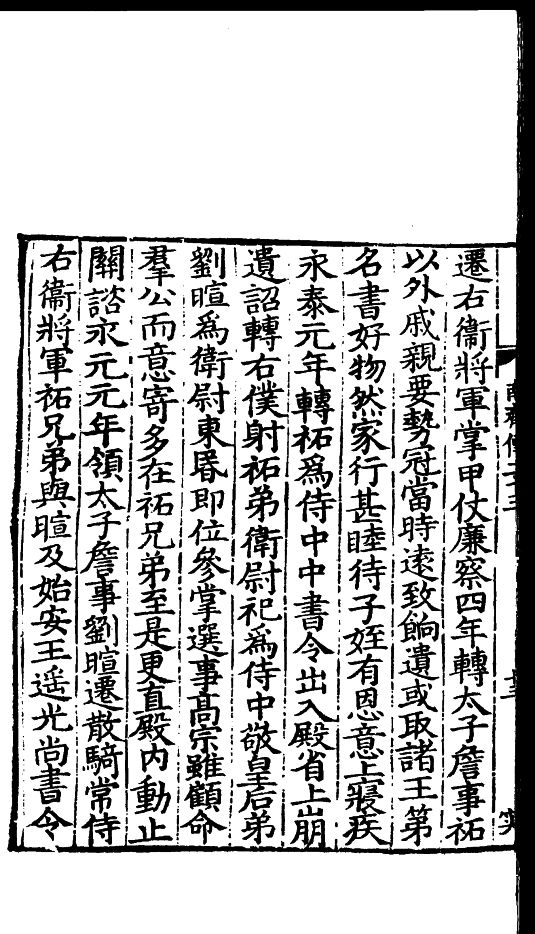 遷右衞將軍掌甲仗廉察四年轉太子詹事祏
以外戚親要勢冠當時遠致餉遺或取諸王第
名書好物然家行甚睦待子姪有恩意上寢疾
永泰元年轉祏爲侍中中書令出入殿省上崩
遺詔轉右僕射祏弟衛尉祀爲侍中敬皇后弟
劉暄爲衛尉東昬即位參掌選事高宗雖顧命
羣公而意寄多在祏兄弟至是更直殿内動止
關諮永元元年領太子詹事劉暄遷散騎常侍
右衞將軍祏兄弟與暄及始安王遥光尚書令